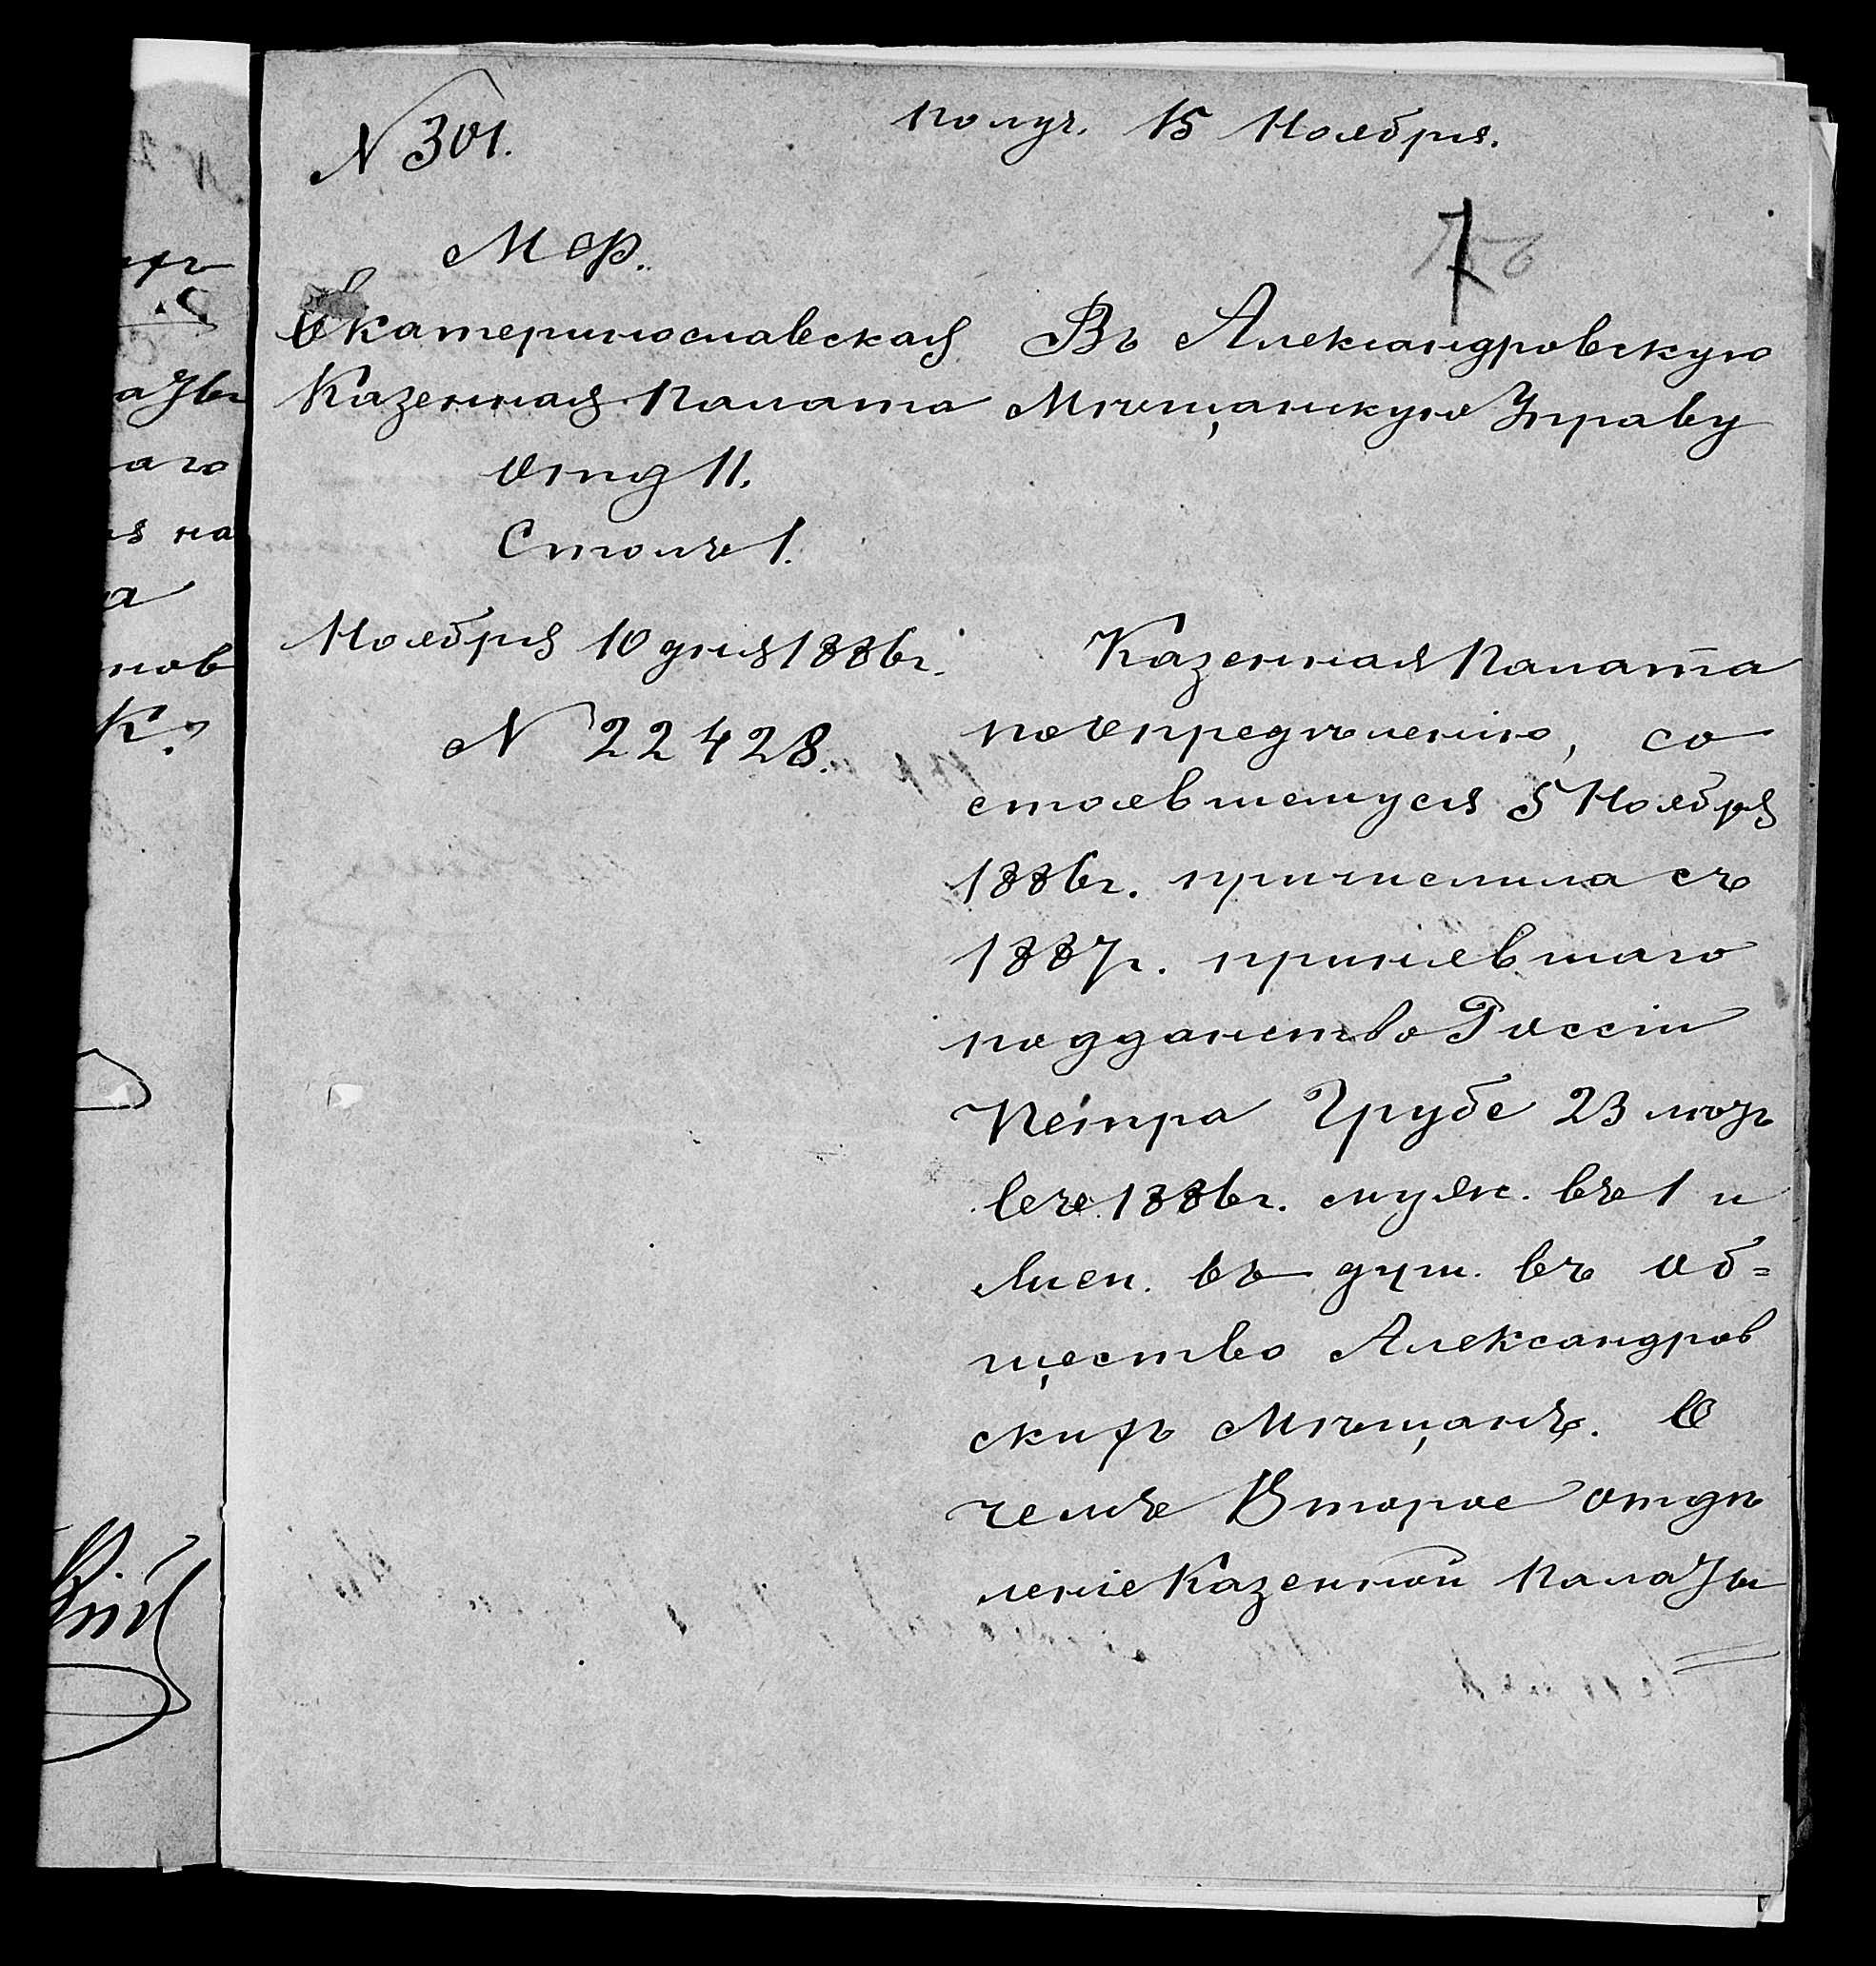 N 301.
получ. 15 Ноября.
М Ф.
7
Екатеринославская
Казенная Палата
Отд II.
Столъ 1.
Ноября 10 дня 1886 г.
N 22428.
Въ Александровскую
Мѣщанскую Управу
Казенная Палата
по опредѣленію, со
стоявшемуся 5 Ноября
1886 г. причислила съ
1887 г. принявшаго
подданство Россіи
Петра Грубе 23 лѣтъ
въ 1886 г. муж. въ 1 и
жен. въ — душ. въ об=
щество Александров
скихъ Мѣщанъ. О
чемъ Второе отдѣ
леніе Казенной Палаты
ихъ
аты
аго
я на
а
нов
К.